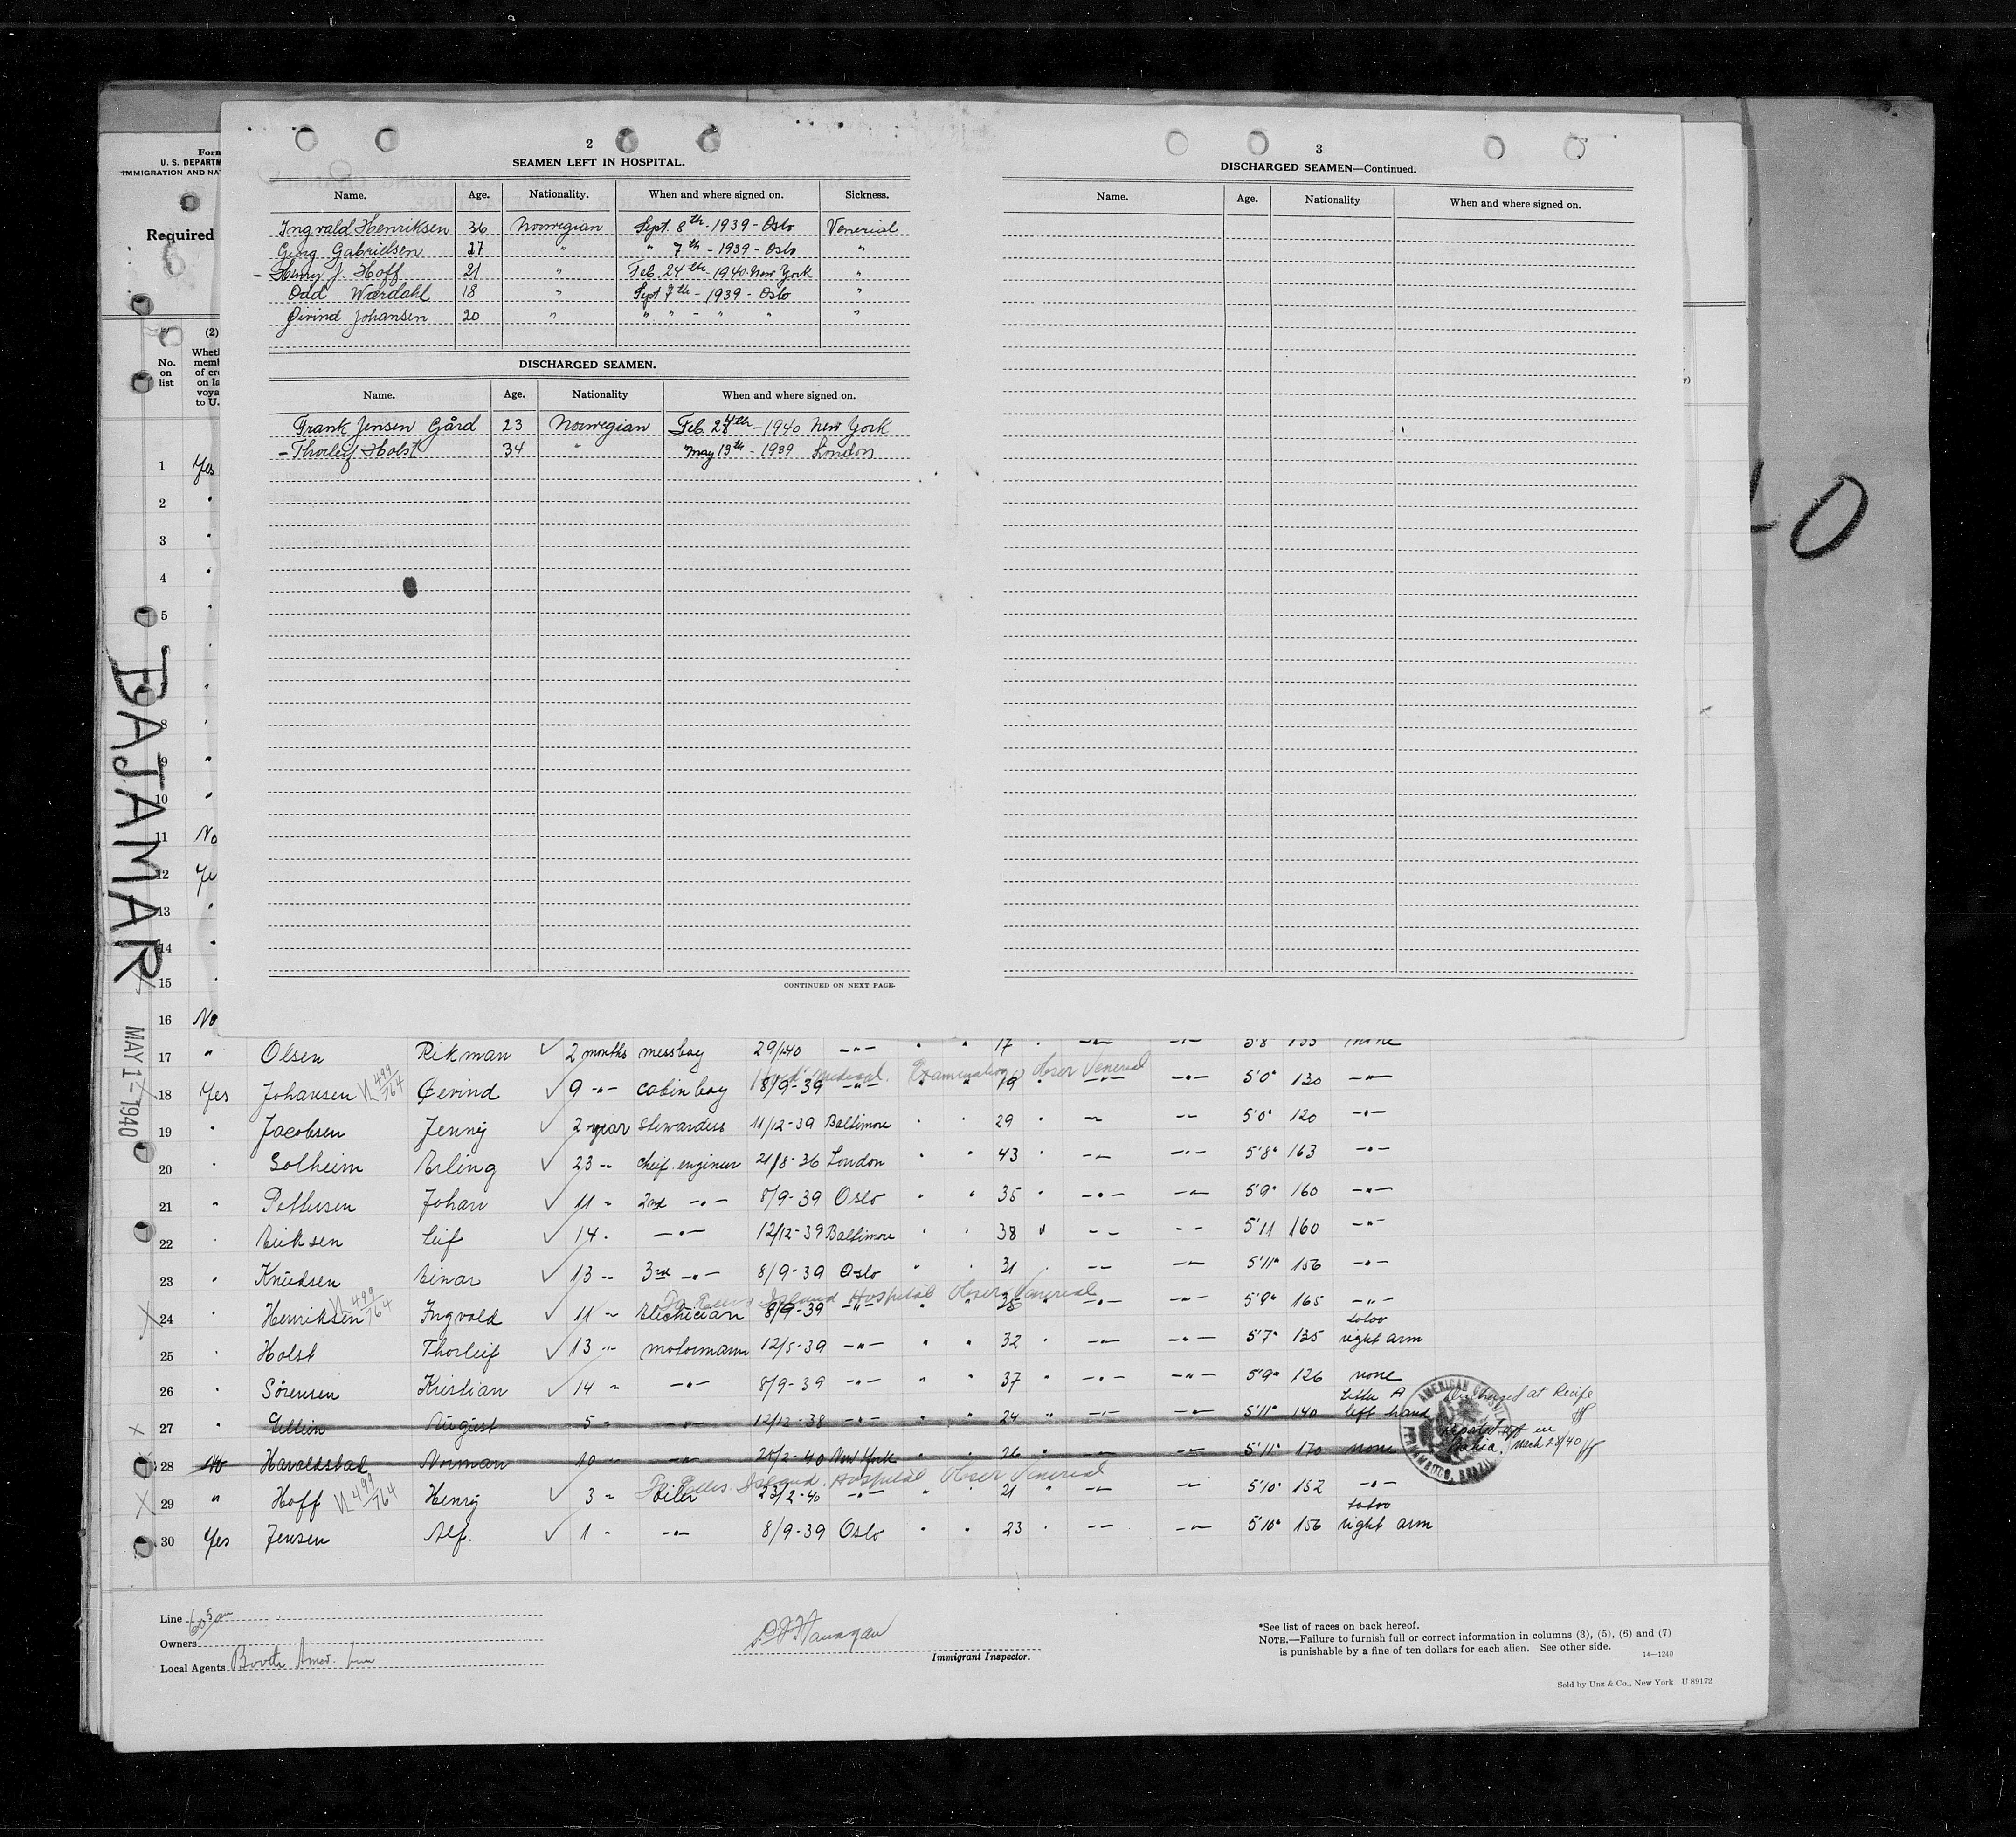 2
SEAMEN LEFT IN HOSPITAL.
Name. Age. Nationality. When and where signed on. Sickness.
Ingvald Henriksen 36 Norwegian Sept. 8th - 1939 - Oslo Venerial
Georg Gabrielsen 27 " " 7th - 1939 - Oslo "
- Henry J. Hoff 21 " Feb. 24th - 1940. New York "
Odd Wærdahl 18 " Sept 7th - 1939 - Oslo "
Øivind Johansen 20 " " " - " " "
DISCHARGED SEAMEN.
Name. Age. Nationality When and where signed on.
Frank Jensen Gård 23 Norwegian Feb. 24th - 1940 New York
- Thorleif Holst 34 " May 13th - 1939 London
CONTINUED ON NEXT PAGE.
3
DISCHARGED SEAMEN—Continued.
Name. Age. Nationality When and where signed on.
Form
U. S. DEPARTM
IMMIGRATION AND NAT
Required
(2)
No. on list
Wheth
memb
of cre
on la
voya
to U.
1 Yes
2 "
3 "
4 "
5 "
7 "
8 "
9 "
10 "
11 No
12 Ye
13 "
14 "
15
16 No
BAJAMAR
MAY 1 - 1940
40
17 " Olsen Rikman ✓ 2 months messboy 29/1-40 -"- " " 17 " -"- -"- 5'8 135 none
Hosp. Medical Examination Obser Venereal
18 Yes Johansen 499/764 Øivind ✓ 9 -"- cabin boy 8/9-39 -"- " " 19 " -"- -"- 5'0" 130 -"-
19 " Jacobsen Jenny ✓ 2 year Stewardess 11/12-39 Baltimore " " 29 " -"- -"- 5'0" 120 -"-
20 " Solheim Erling ✓ 23 -"- cheif. engineer 21/8-36 London " " 43 " -"- -"- 5'8" 163 -"-
21 " Pettersen Johan ✓ 11 " 2nd -"- 8/9-39 Oslo " " 35 " -"- -"- 5'9" 160 -"-
22 " Eriksen Leif ✓ 14 " -"- 12/12-39 Baltimore " " 38 " -"- -"- 5'11 160 -"-
23 " Knudsen Einar ✓ 13 -"- 3rd -"- 8/9-39 Oslo " " 31 " -"- -"- 5'11" 156 -"-
To Ellis Island Hospital Obser Venereal
24 " Henriksen 499/764 Ingvald ✓ 11 " Electrician 8/9-39 -"- " " 35 " -"- -"- 5'9" 165 -"-
25 " Holst Thorleif ✓ 13 -"- motormann 12/5-39 -"- " " 32 " -"- -"- 5'7" 135 tatoo right arm
26 " Sørensen Kristian ✓ 14 " -"- 8/9-39 -"- " " 37 " -"- -"- 5'9" 126 none
27 " August 5 " -"- 12/12-38 -"- " " 24 " -"- -"- 5'11" 140 letter A left hand Discharged at Recife
28 No Haraldstad Norman 10 " -"- 28/2-40 New York " " 26 " -"- -"- 5'11" 170 none in Bahia, March 28/40
AMERICAN CONSUL
PERNAMBUCO, BRAZIL
To Ellis Island Hospital Obser Venereal
29 " Hoff 499/764 Henry ✓ 3 " Oiler 23/2-40 -"- " " 21 " -"- -"- 5'10" 152 -"-
30 Yes Jensen Alf. ✓ 1 " -"- 8/9-39 Oslo " " 23 " -"- -"- 5'10" 156 tatoo right arm
Line
Owners
Local Agents Booth Amer. Line
Immigrant Inspector.
*See list of races on back hereof.
NOTE.—Failure to furnish full or correct information in columns (3), (5), (6) and (7)
is punishable by a fine of ten dollars for each alien. See other side.
14—1240
Sold by Unz & Co., New York U 89172